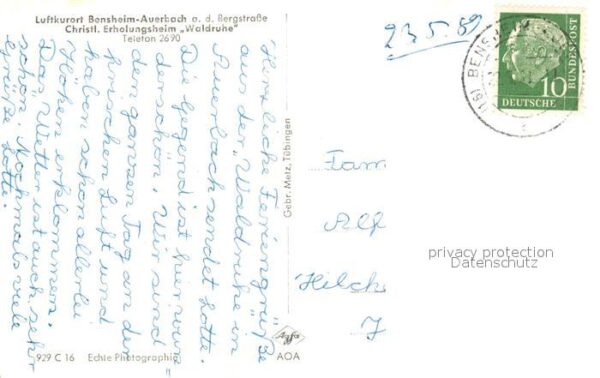 Luftkurort Bensheim-Auerbach a. d. Bergstraße
Christl. Erholungsheim „Waldruhe"
Telefon 2690
Herzliche Feriengrüße
aus der „Waldruhe in
Auerbach sendet Lotte.
Die Gegend ist hier wun
derschön, Wir sind
den ganzen Tag an der
frischen Luft und
haben schon allerlei
Höhen erklommen.
Das Wetter ist auch sehr
schön Nochmals viele
Grüße Lotte.
929 C 16 Echte Photographie
Gebr. Metz, Tübingen
Agfa
AOA
23.5.59
(16) BENSHEIM
10
DEUTSCHE
BUNDESPOST
Fam
Alf
Hilch
privacy protection
Datenschutz